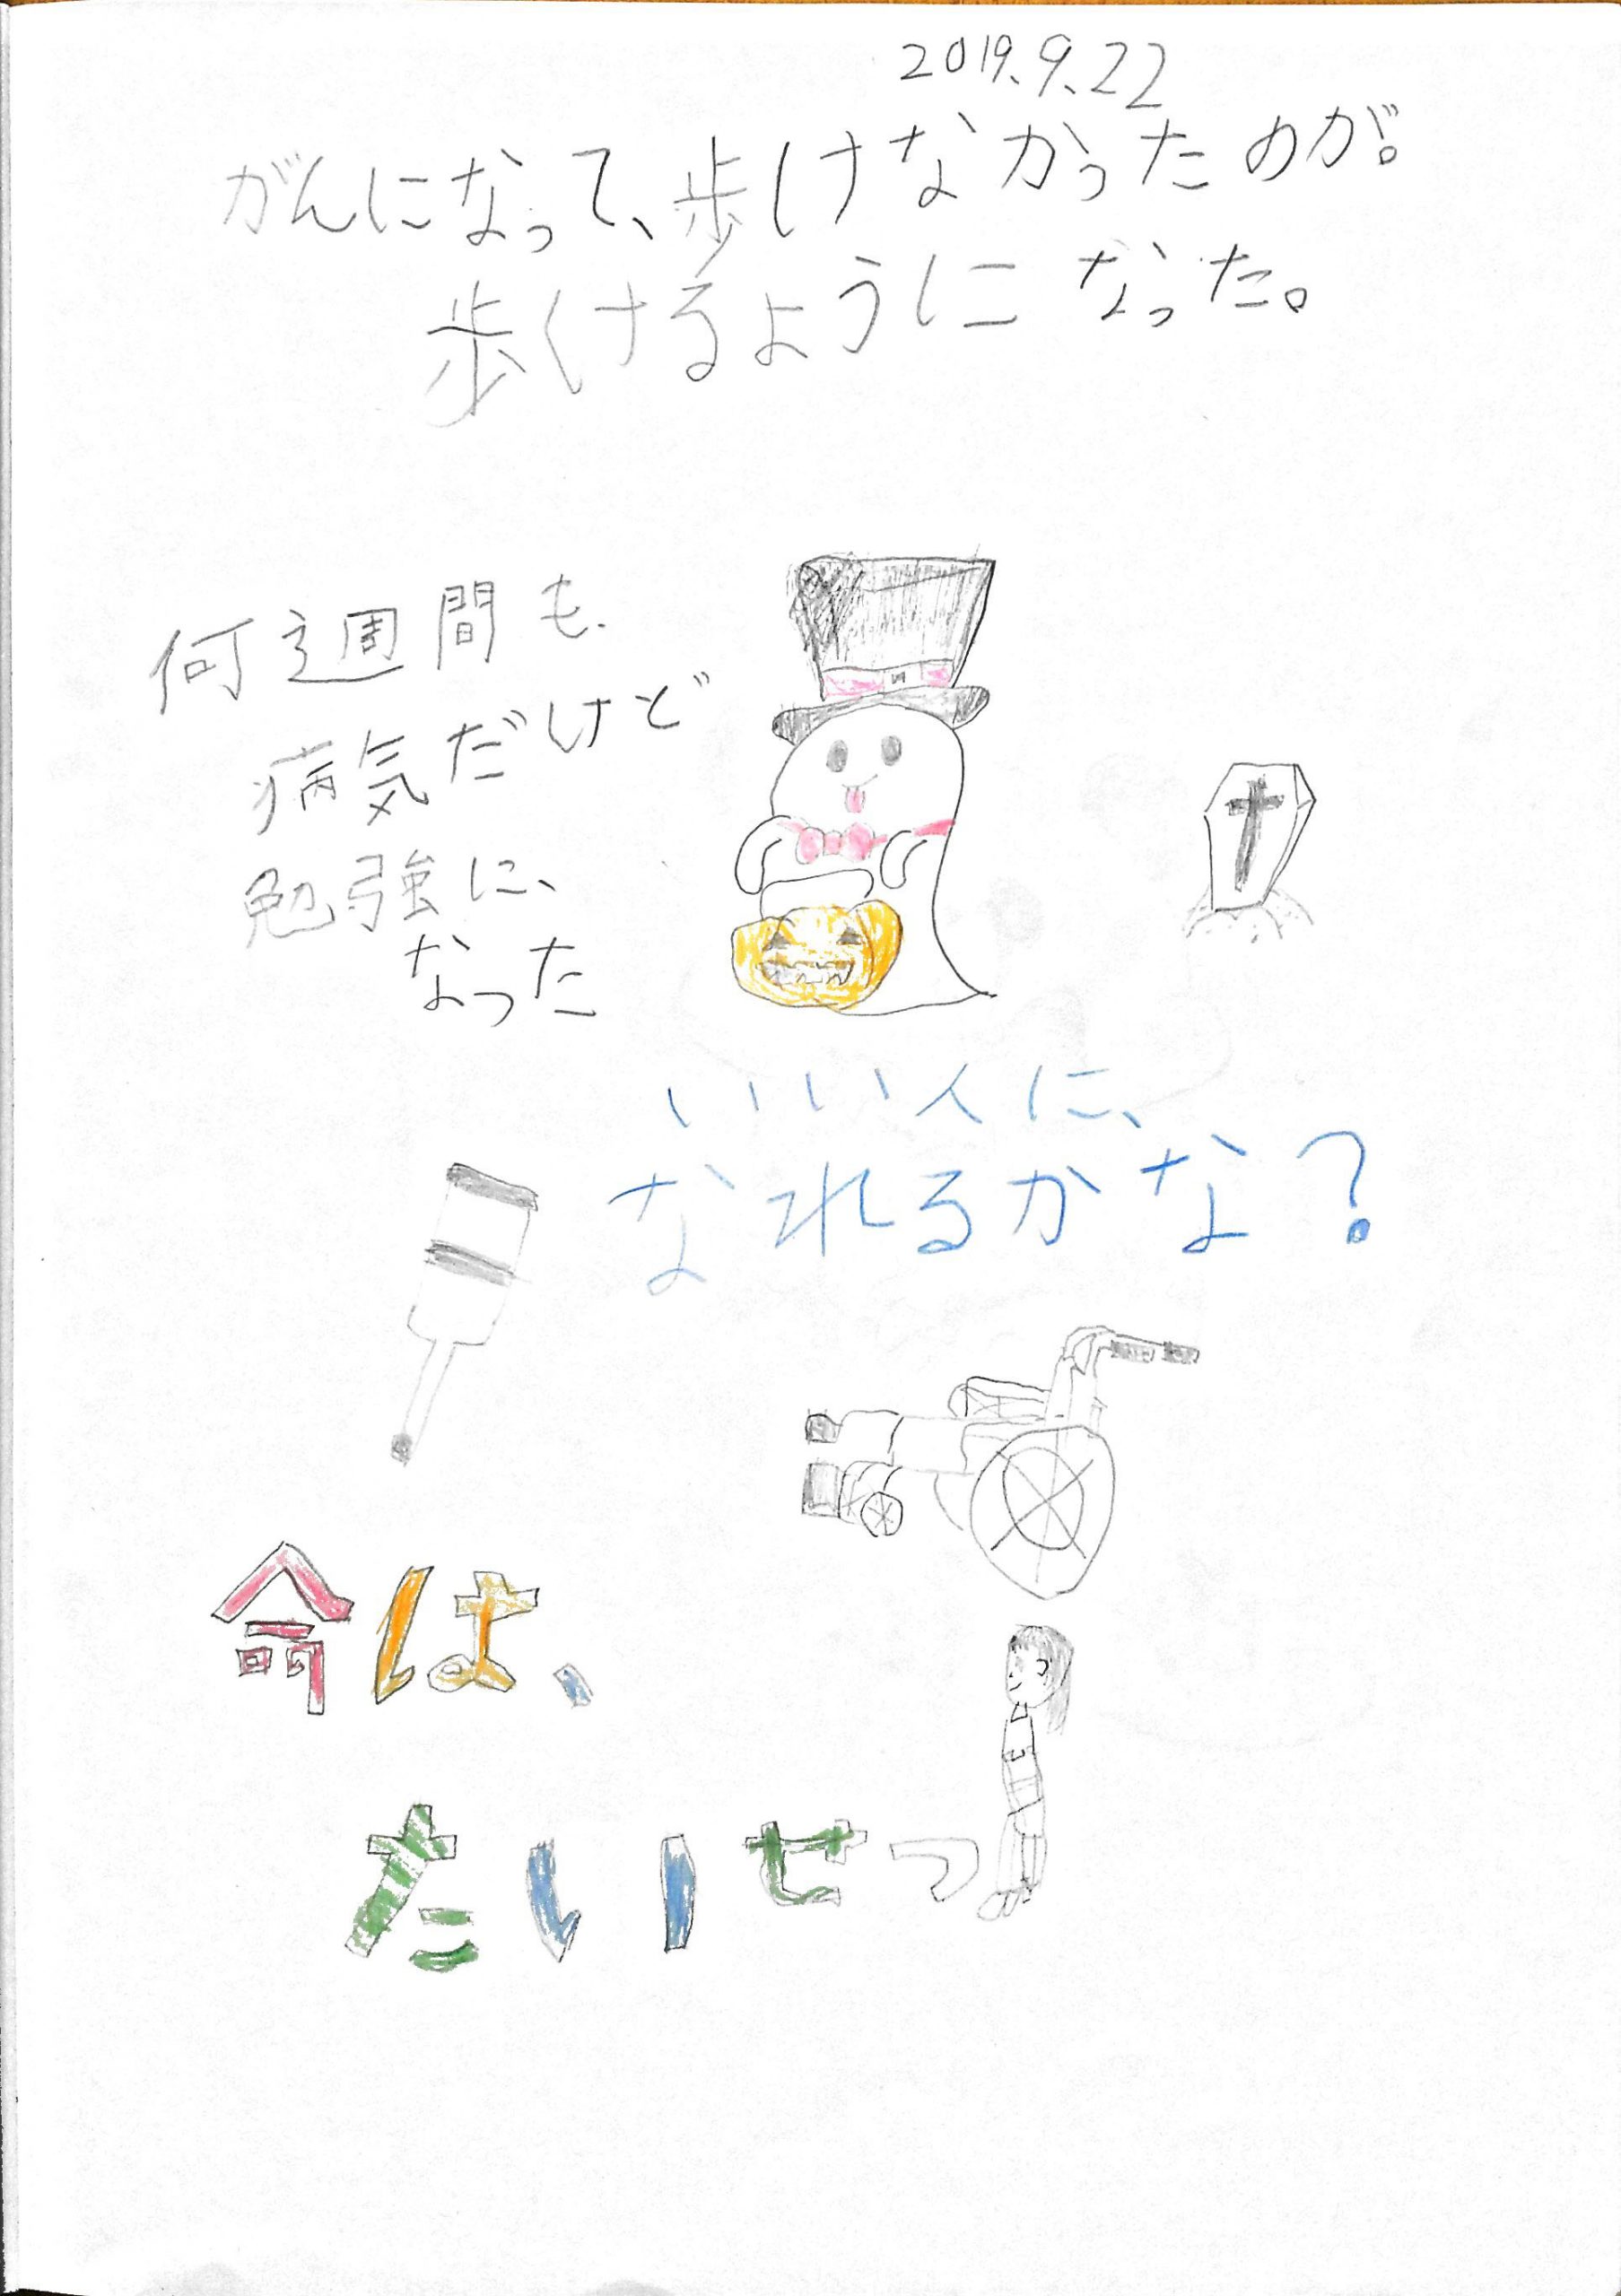 2019.9.22
がんになって、歩けなかったのが。
歩くけるようになった。
何週間も、
病気だけど
勉強に、
なった
いい人に、
なれるかな?
命は、
たいせつ